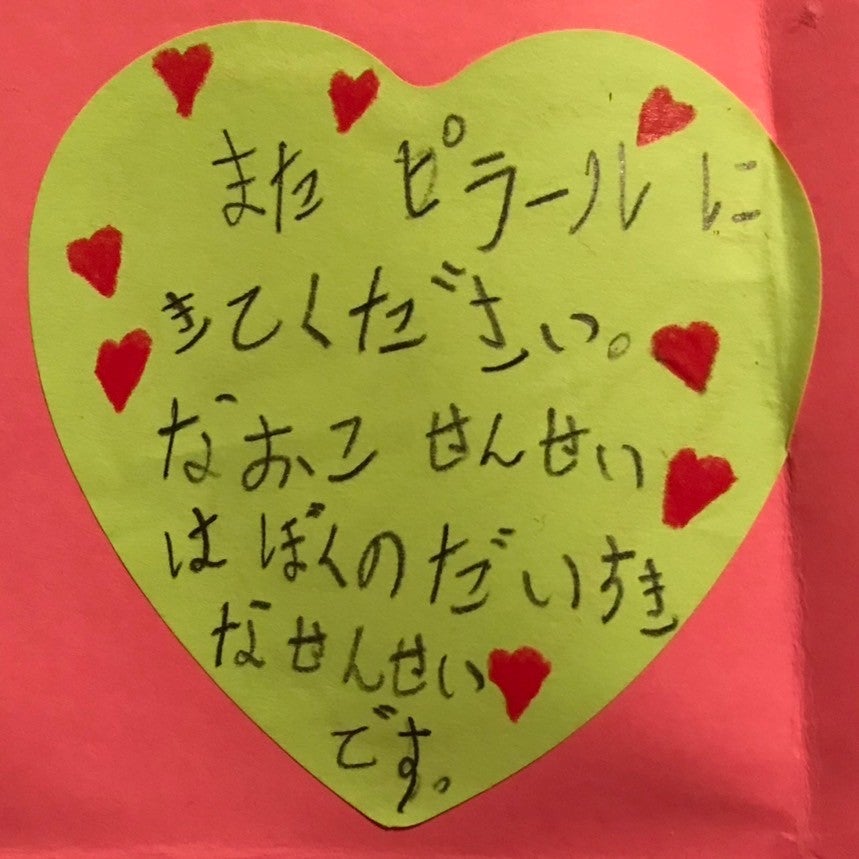 また ピラール に
きてください。
なおこ せんせい
は ぼくの だいすき
なせんせい
です。